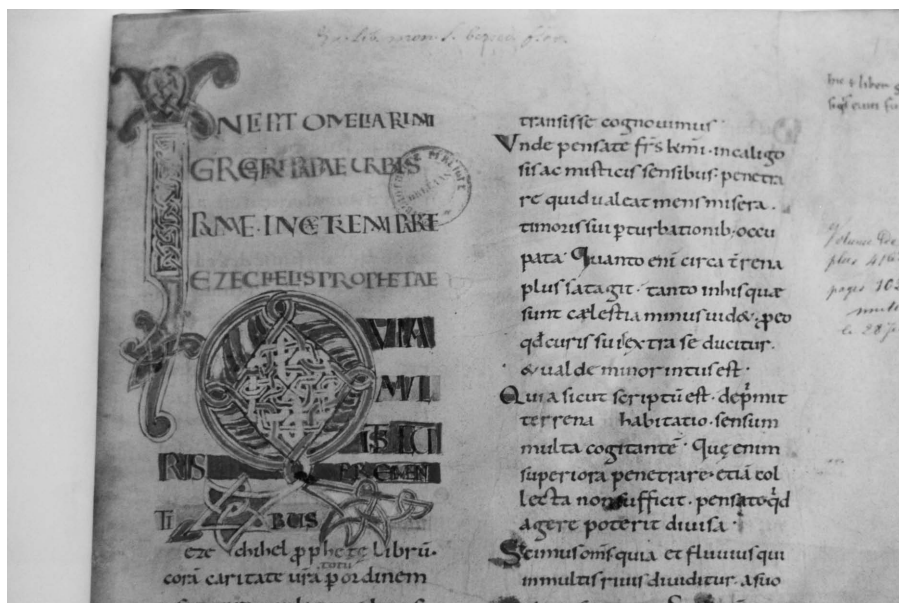 INCIPIT OMELIA BEATI
GREGORII PAPAE URBIS
ROMAE · IN EXTREMA PARTE
EZECHIELIS PROPHETAE
QUIA
MUL
TIS CU
RIS PREMEN
TIBUS
eze chihel ꝓphete Librū·
totū
corā caritate urā ꝑ ordinem
transisse cognouimus·
Vnde pensate frs̄ kmi· in caligo
sis ac misticis sensibus· penetra
re quid ualeat mens misera·
timoris sui ꝑturbationib; occu
pata· Quanto enī circa trena
plus satagit· tanto in his quae
sunt cælestia minus uid&· ꝓeo
qd curis suis extra se ducitur·
& ualde minor intus est·
Quia sicut scriptū est· depmit
terrena habitatio· sensum
multa cogitantē· Quę enim
superiora penetrare· etiā col
lecta non sufficit· pensate qd
agere poterit diuisa·
Scimus oms quia et fluuius qui
in multis riuis diuiditur· a suo
hic ÷ liber